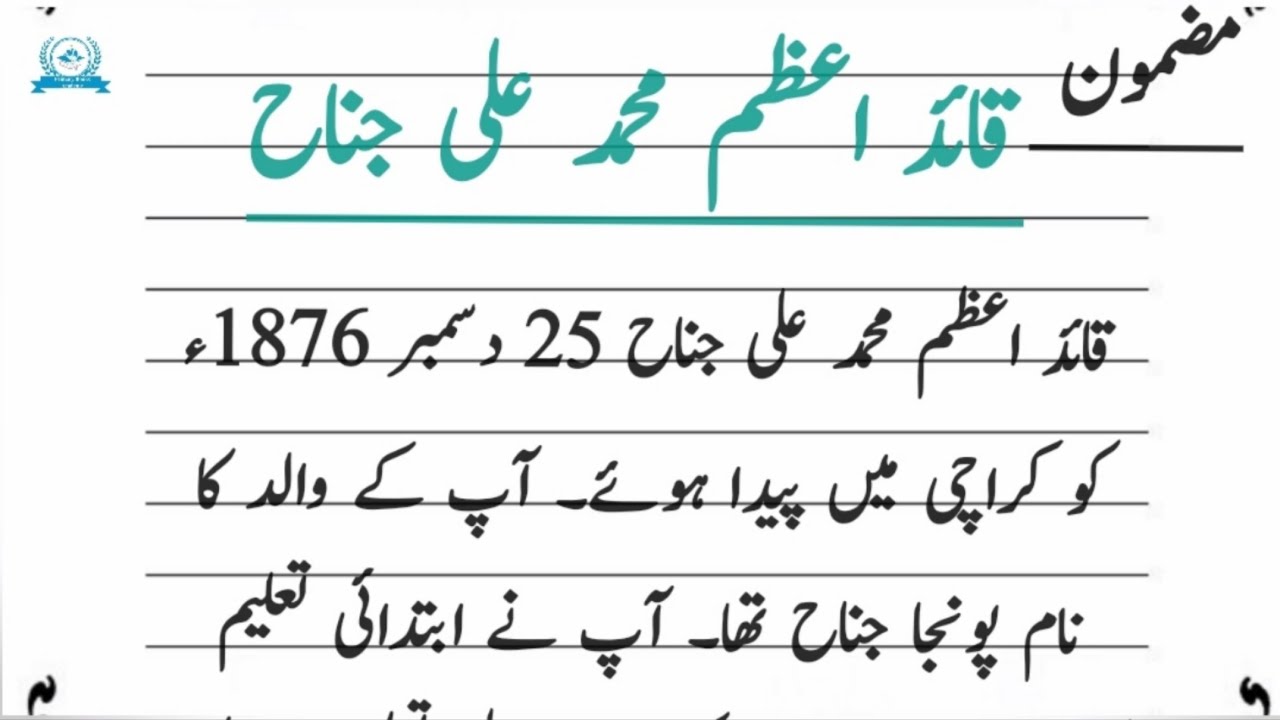 مضمون
قائد اعظم محمد علی جناح
قائد اعظم محمد علی جناح 25 دسمبر 1876ء
کو کراچی میں پیدا ہوئے۔ آپ کے والد کا
نام پونجا جناح تھا۔ آپ نے ابتدائی تعلیم